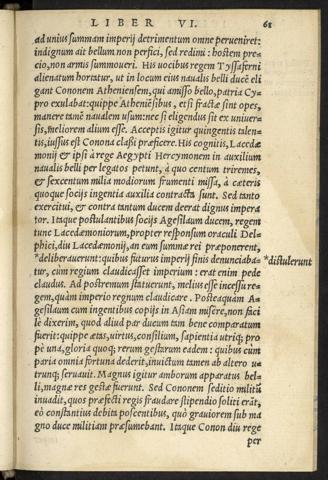 LIBER VI. 61
ad unius summam imperij detrimentum omne perueniret:
indignum ait bellum non perfici, sed redimi: hostem pre-
cio, non armis summoueri. His uocibus regem Tyssaferni
alienatum hortatur, ut in locum eius naualis belli ducē eli
gat Cononem Atheniensem, qui amisso bello, patria Cy-
pro exulabat: quippe Atheniēsibus, etsi fractæ sint opes,
manere tamē naualem usum: nec si eligendus sit ex uniuer-
sis, meliorem alium esse. Acceptis igitur quingentis talen-
tis, iussus est Conona clasi præficere. His cognitis, Lacedæ
monij & ipsi à rege Aegypti Hercymonem in auxilium
naualis belli per legatos petunt, à quo centum triremes,
& sexcentum milia modiorum frumenti missa, à cæteris
quoque socijs ingentia auxilia contracta sunt. Sed tanto
exercitui, & contra tantum ducem deerat dignus impera
tor. Itaque postulantibus socijs Agesilaum ducem, regem
tunc Lacedæmoniorum, propter responsum oraculi Del-
phici, diu Lacedæmonij, an eum summæ rei præponerent,
*deliberauerunt: quibus futurus imperij finis denunciaba- *distulerunt
tur, cùm regium claudicasset imperium: erat enim pede
claudus. Ad postremum statuerunt, melius esse incessu re-
gem, quàm imperio regnum claudicare. Posteaquam A-
gesilaum cum ingentibus copijs in Asiam misére, non faci
lè dixerim, quod aliud par ducum tam bene comparatum
fuerit: quippe ætas, uirtus, consilium, sapientia utriq; pro
pè una, gloria quoq; rerum gestarum eadem: quibus cum
paria omnia fortuna dederit, inuictum tamen ab altero u-
trunq; seruauit. Magnus igitur amborum apparatus bel-
li, magnæ res gestæ fuerunt. Sed Cononem seditio militū
inuadit, quos præfecti regis fraudare stipendio soliti erāt,
eò constantius debita poscentibus, quò grauiorem sub ma
gno duce militiam præsumebant. Itaque Conon diu rege
per